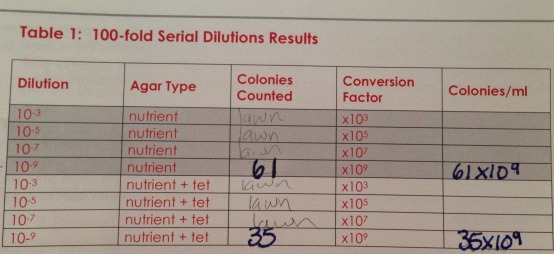 Table 1: 100-fold Serial Dilutions Results
Dilution Agar Type Colonies Counted Conversion Factor Colonies/ml
10-3 nutrient lawn x10³
10-5 nutrient lawn x10⁵
10-7 nutrient lawn x10⁷
10-9 nutrient 61 x10⁹ 61x10⁹
10-3 nutrient + tet lawn x10³
10-5 nutrient + tet lawn x10⁵
10-7 nutrient + tet lawn x10⁷
10-9 nutrient + tet 35 x10⁹ 35x10⁹